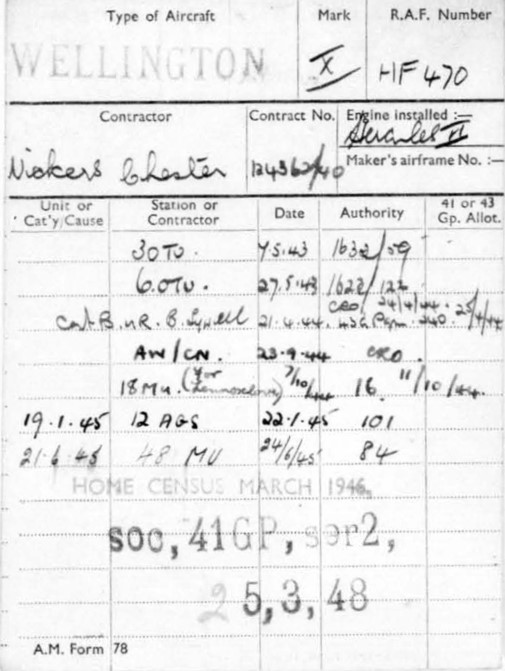 Type of Aircraft Mark R.A.F. Number
WELLINGTON X HF 470
Contractor Contract No. Engine installed :—
Hercules VI
Vickers Chester 124362/40 Maker's airframe No. :—
Unit or Cat'y/Cause Station or Contractor Date Authority 41 or 43 Gp. Allot.
3 OTU. 7.5.43 1632/59
6.OTU. 27.5.43 1622/122
CRO/ 24/4/44. 25/4/44
Cat B. R. B. 21.4.44. 43G 340
AW/CN. 23.9.44 CRO.
18 MU. (for Lennoxlove) 7/10/44 16. 11/10/44.
19.1.45 12 AGS 22.1.45 101
21.6.45 48 MU 24/6/45 84
HOME CENSUS MARCH 1946.
soc, 41GP, ser2,
25,3,48
A.M. Form 78